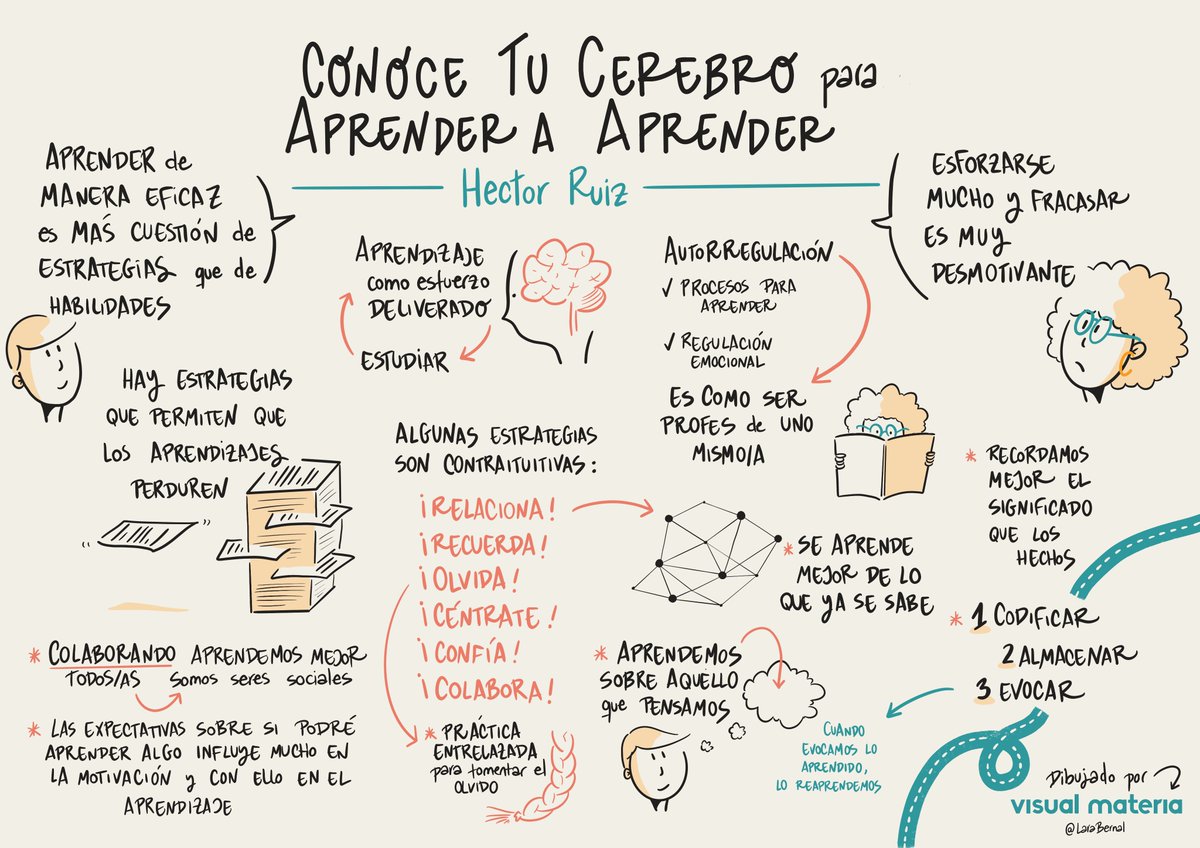 CONOCE TU CEREBRO para
APRENDER A APRENDER
Hector Ruiz
APRENDER de
MANERA EFICAZ
es MAS CUESTIÓN de
ESTRATEGIAS que de
HABILIDADES
APRENDIZAJE
como esfuerzo
DELIVERADO
ESTUDIAR
AUTORREGULACIÓN
✓ PROCESOS PARA
APRENDER
✓ REGULACIÓN
EMOCIONAL
ES COMO SER
PROFES de UNO
MISMO/A
ESFORZARSE
MUCHO y FRACASAR
ES MUY
DESMOTIVANTE
HAY ESTRATEGIAS
QUE PERMITEN QUE
LOS APRENDIZAJES
PERDUREN
ALGUNAS ESTRATEGIAS
SON CONTRAITUITIVAS:
¡RELACIONA!
¡RECUERDA!
¡OLVIDA!
¡CÉNTRATE!
¡CONFÍA!
¡COLABORA!
* PRÁCTICA
ENTRELAZADA
para fomentar el
OLVIDO
* SE APRENDE
MEJOR DE LO
QUE YA SE SABE
* RECORDAMOS
MEJOR EL
SIGNIFICADO
QUE LOS
HECHOS
* COLABORANDO APRENDEMOS MEJOR
TODOS/AS SOMOS seres sociales
* LAS EXPECTATIVAS SOBRE SI PODRÉ
APRENDER ALGO INFLUYE MUCHO EN
LA MOTIVACIÓN y CON ELLO EN EL
APRENDIZAJE
* APRENDEMOS
SOBRE AQUELLO
que PENSAMOS
* 1 CODIFICAR
2 ALMACENAR
3 EVOCAR
CUANDO
EVOCAMOS LO
APRENDIDO,
LO REAPRENDEMOS
Dibujado por
visual materia
@LaraBernal